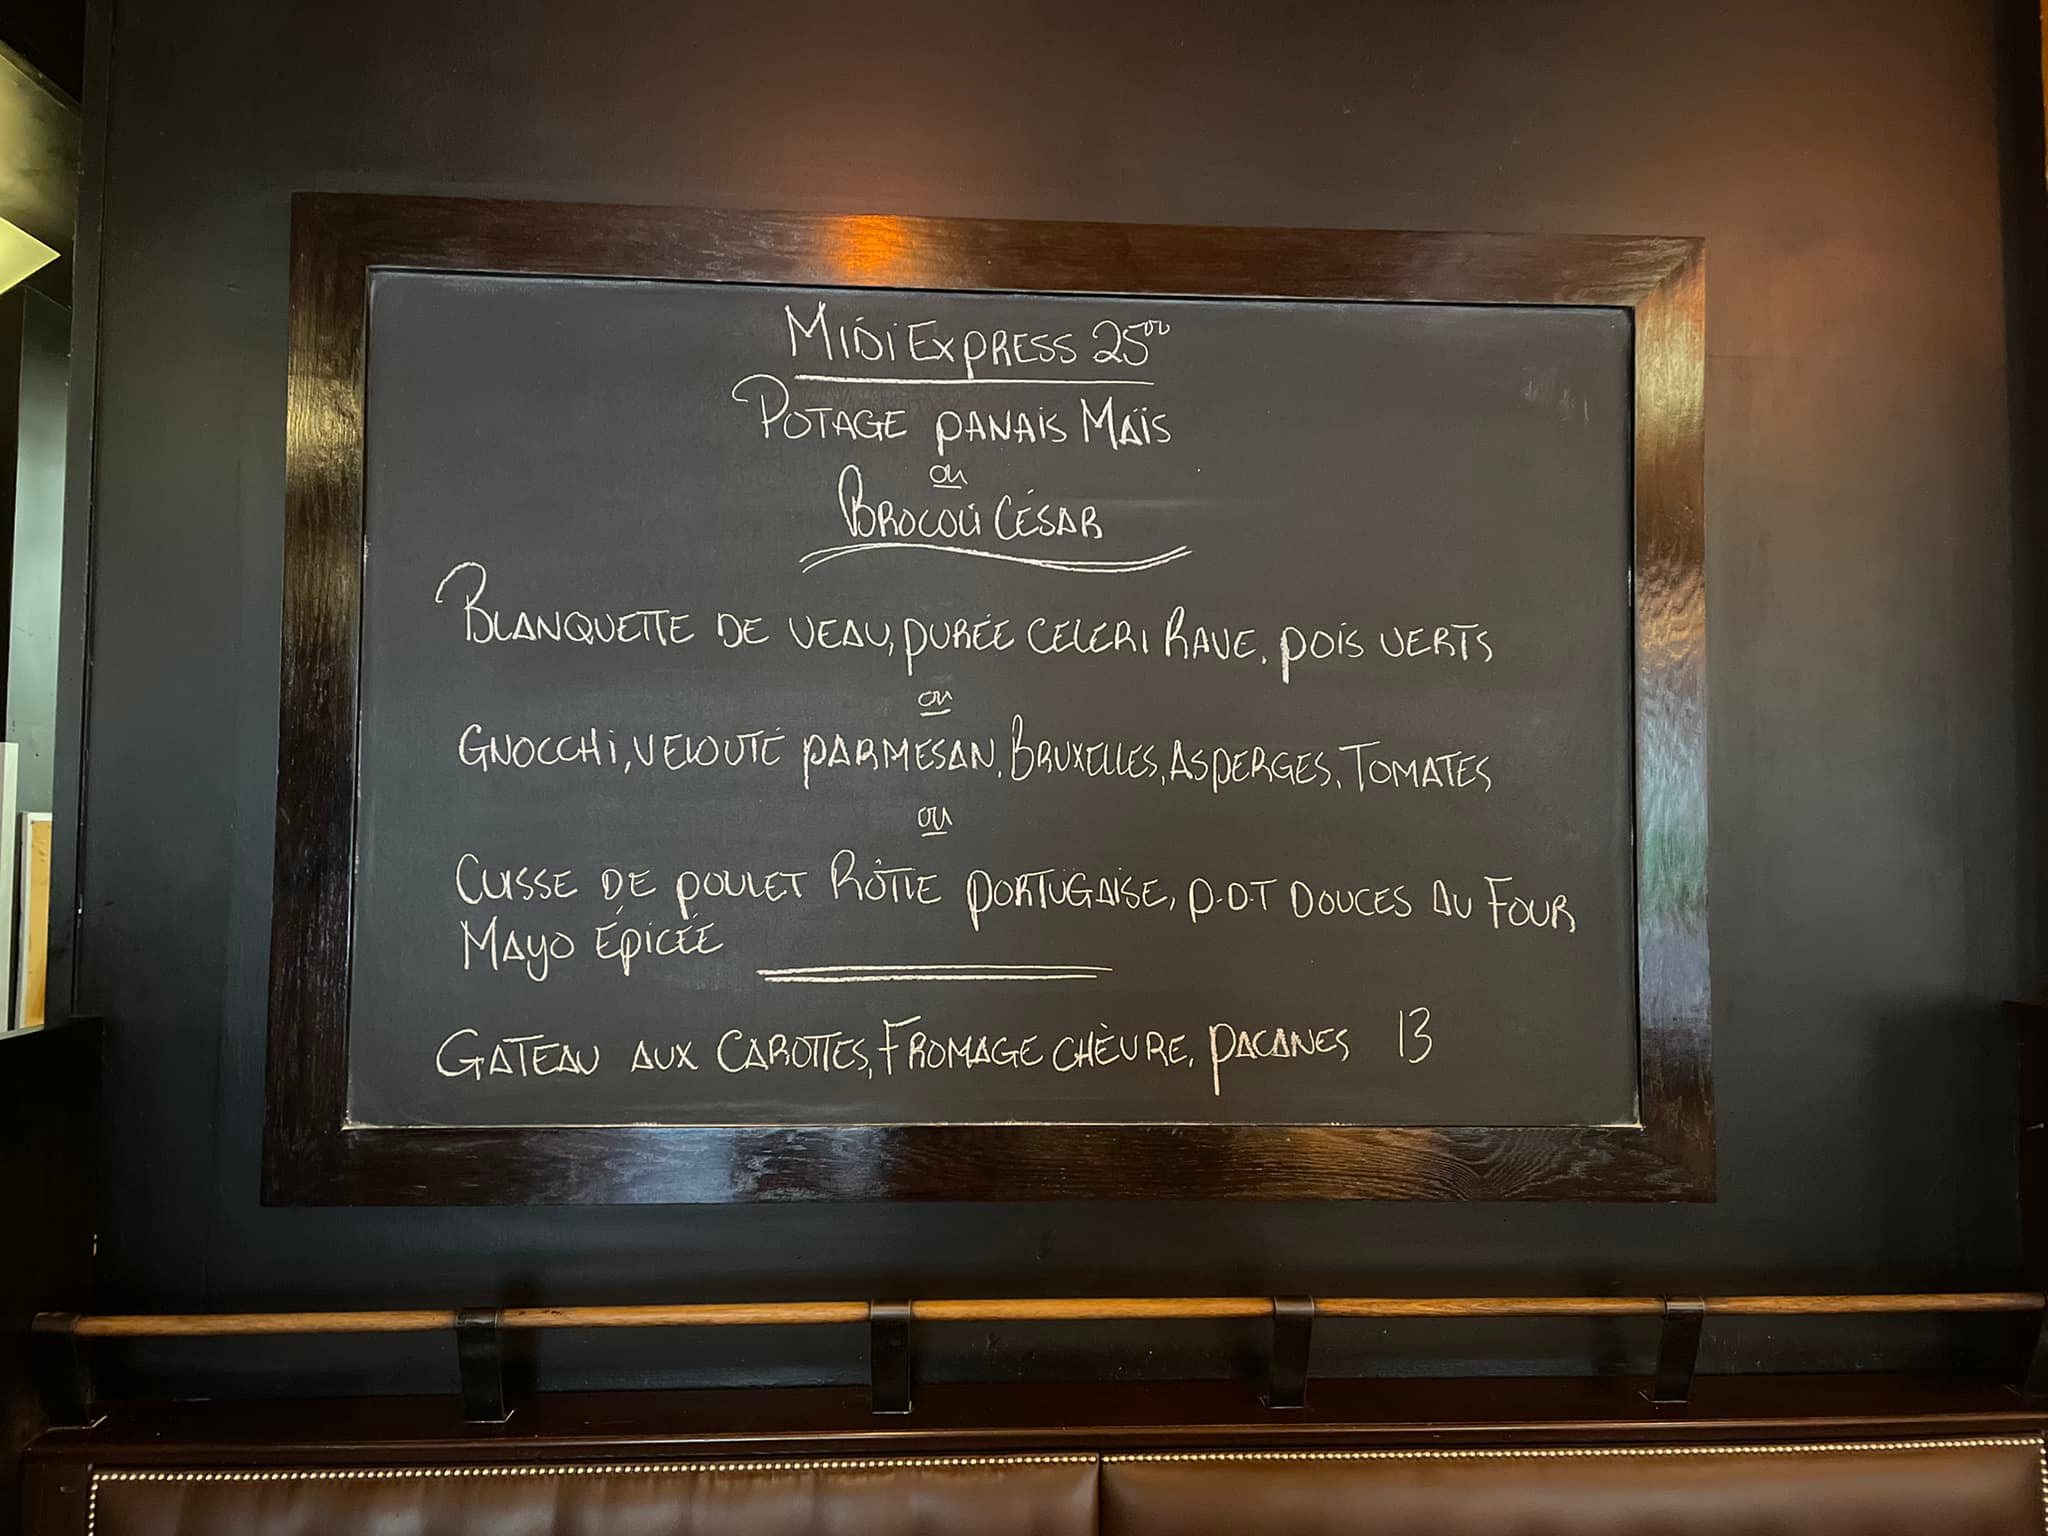 MiDi Express 25⁰⁰
Potage panais Maïs
ou
Brocoli César
Blanquette de veau, purée celeri Rave, pois verts
ou
Gnocchi, velouté parmesan, Bruxelles, Asperges, Tomates
ou
Cuisse de poulet Rôtie portugaise, p.d.t douces au Four,
Mayo Épicée
Gateau aux carottes, Fromage chèvre, pacanes 13